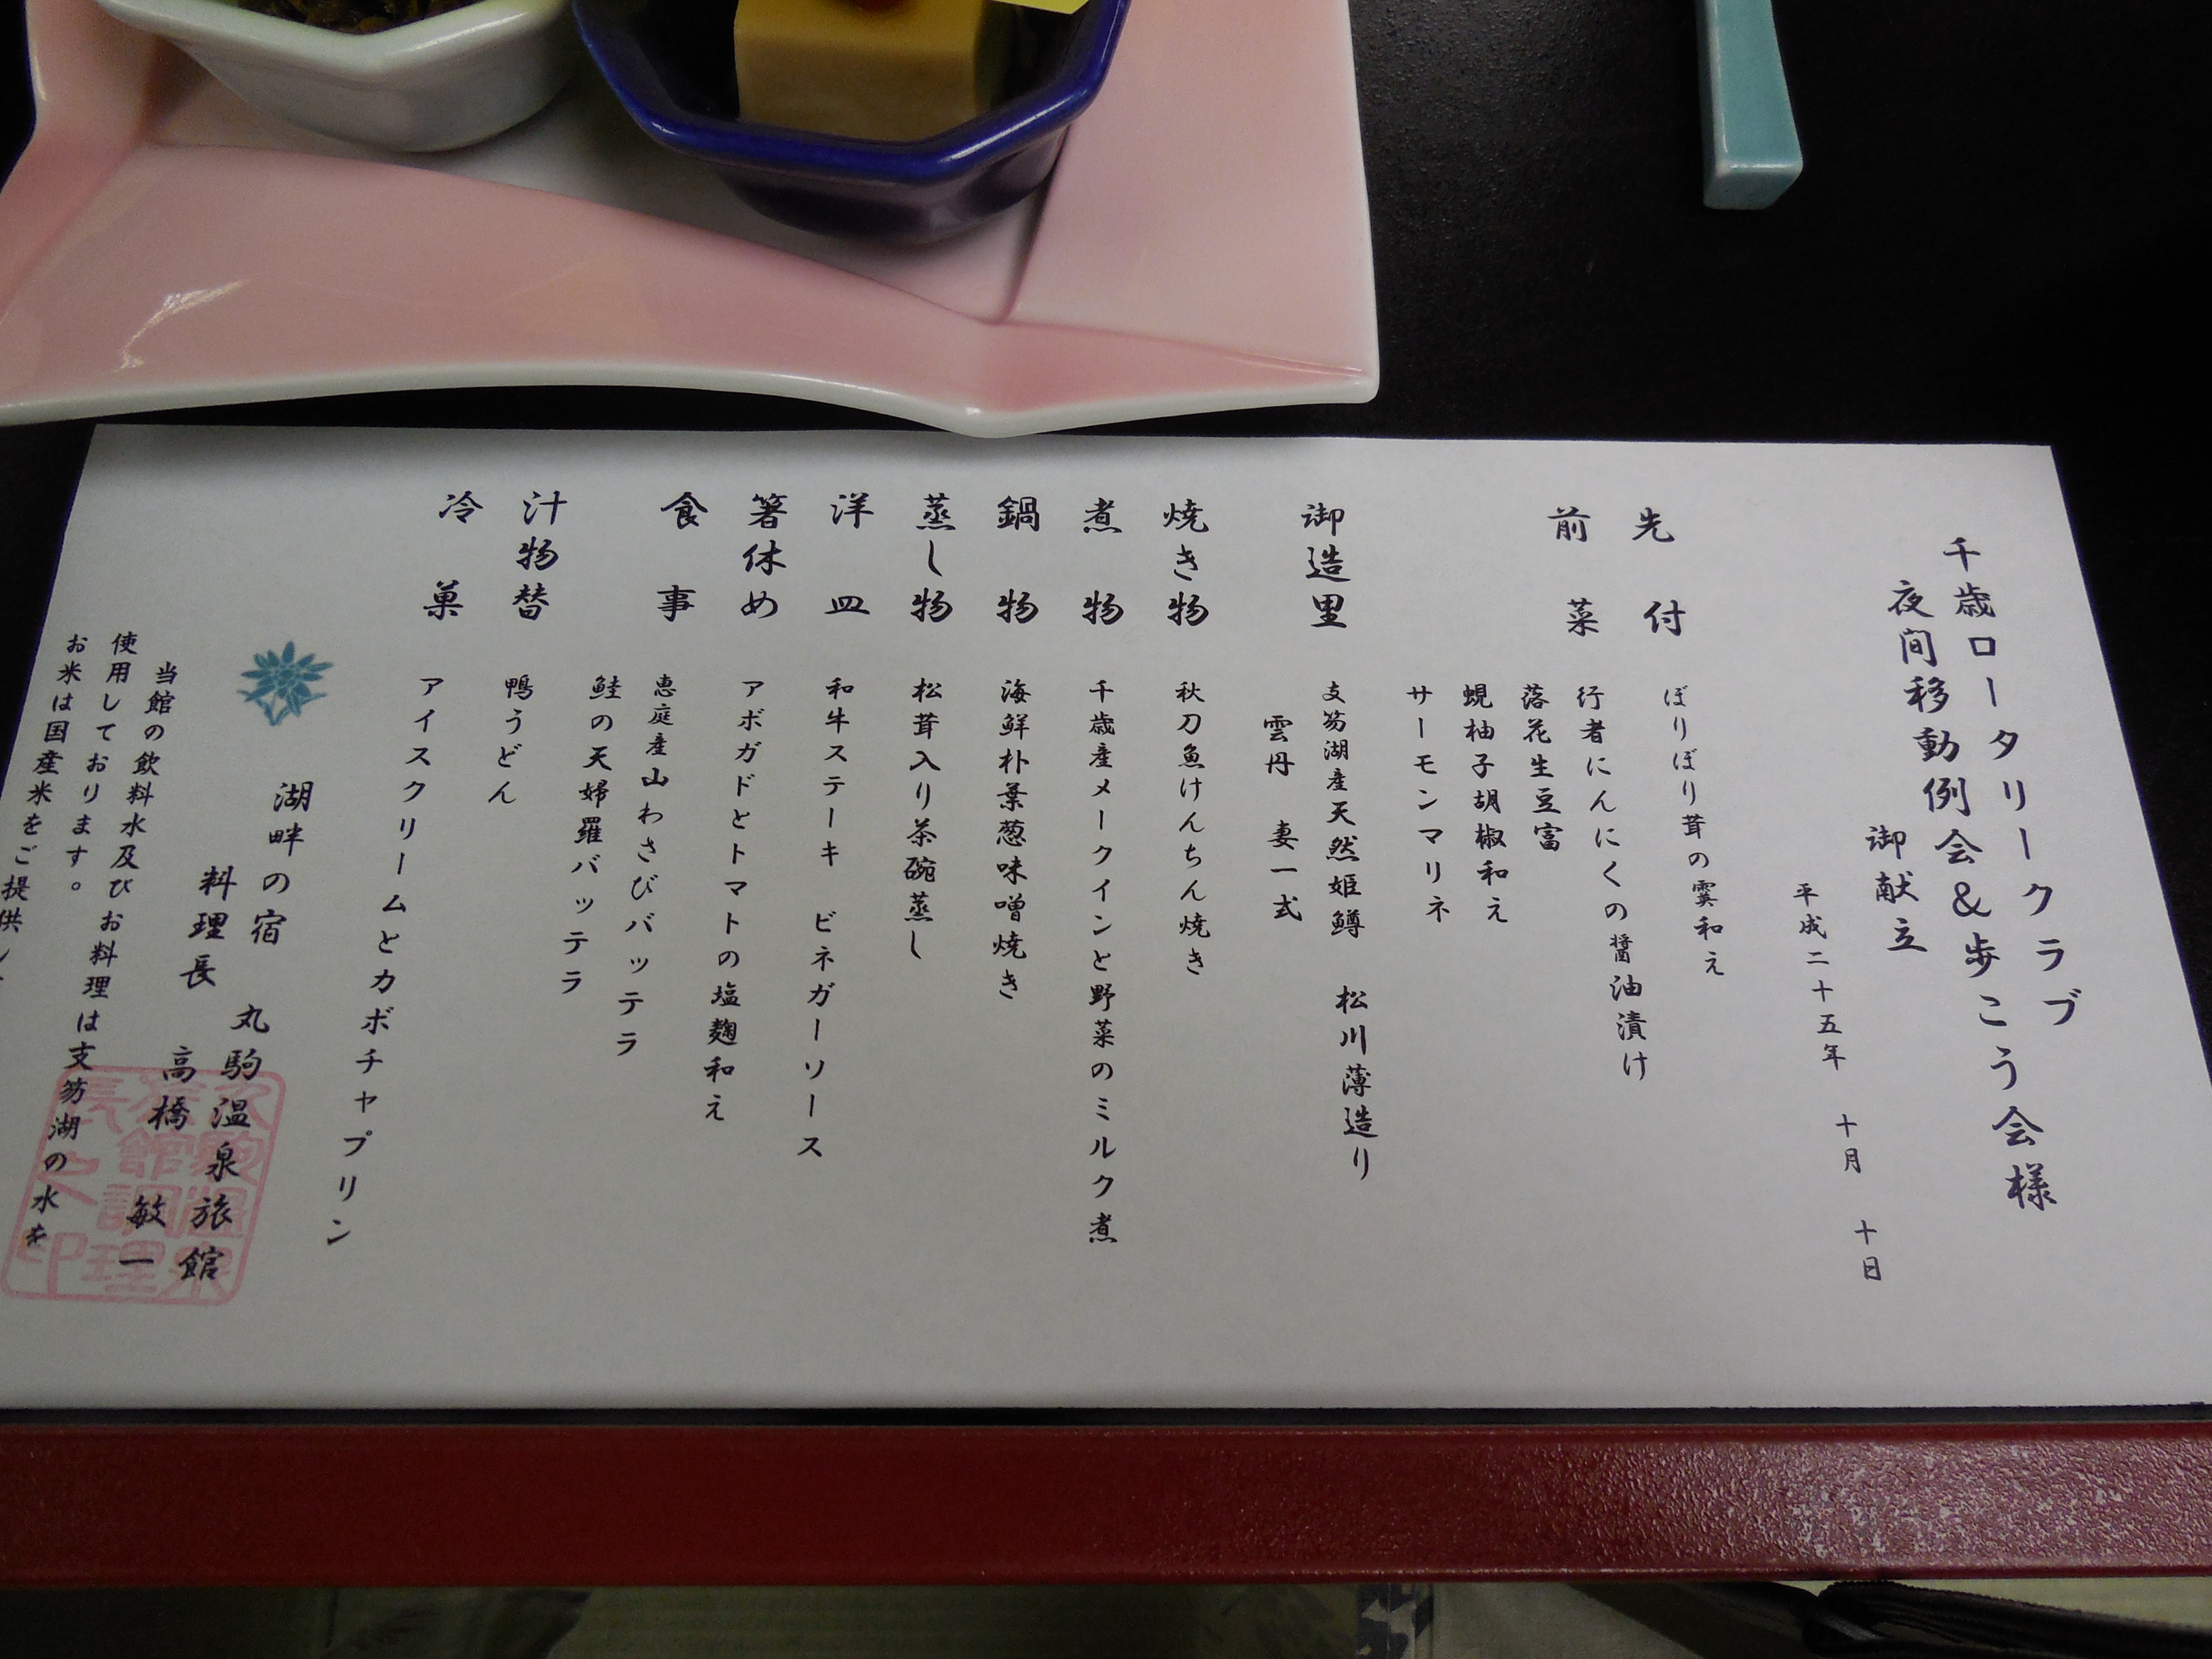 千歳ロータリークラブ
夜間移動例会&歩こう会様
御献立
平成二十五年 十月 十日
先付 ぼりぼり茸の霙和え
前菜 行者にんにくの醤油漬け
落花生豆富
蜆柚子胡椒和え
サーモンマリネ
御造里 支笏湖産天然姫鱒 松川薄造り
雲丹 妻一式
焼き物 秋刀魚けんちん焼き
煮物 千歳産メークインと野菜のミルク煮
鍋物 海鮮朴葉葱味噌焼き
蒸し物 松茸入り茶碗蒸し
洋皿 和牛ステーキ ビネガーソース
箸休め アボガドとトマトの塩麹和え
食事 恵庭産山わさびバッテラ
鮭の天婦羅バッテラ
汁物替 鴨うどん
冷菓 アイスクリームとカボチャプリン
湖畔の宿 丸駒温泉旅館
料理長 高橋 敏一
丸駒温泉旅館調理長之印
当館の飲料水及びお料理は支笏湖の水を
使用しております。
お米は国産米をご提供し